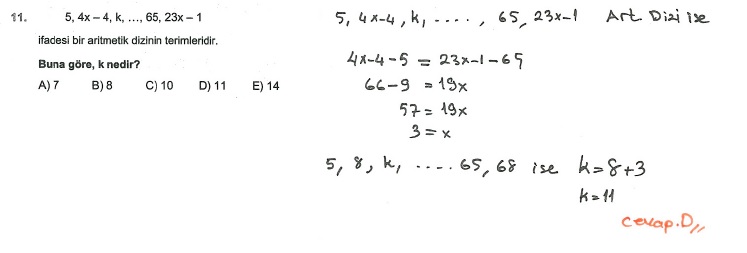 11. 5, 4x – 4, k, ..., 65, 23x – 1
ifadesi bir aritmetik dizinin terimleridir.
Buna göre, k nedir?
A) 7 B) 8 C) 10 D) 11 E) 14
5, 4x-4, k, ...., 65, 23x-1 Art. Dizi ise
4x-4-5 = 23x-1-65
66-9 = 19x
57 = 19x
3 = x
5, 8, k, .... 65, 68 ise k=8+3
k=11
cevap.D//